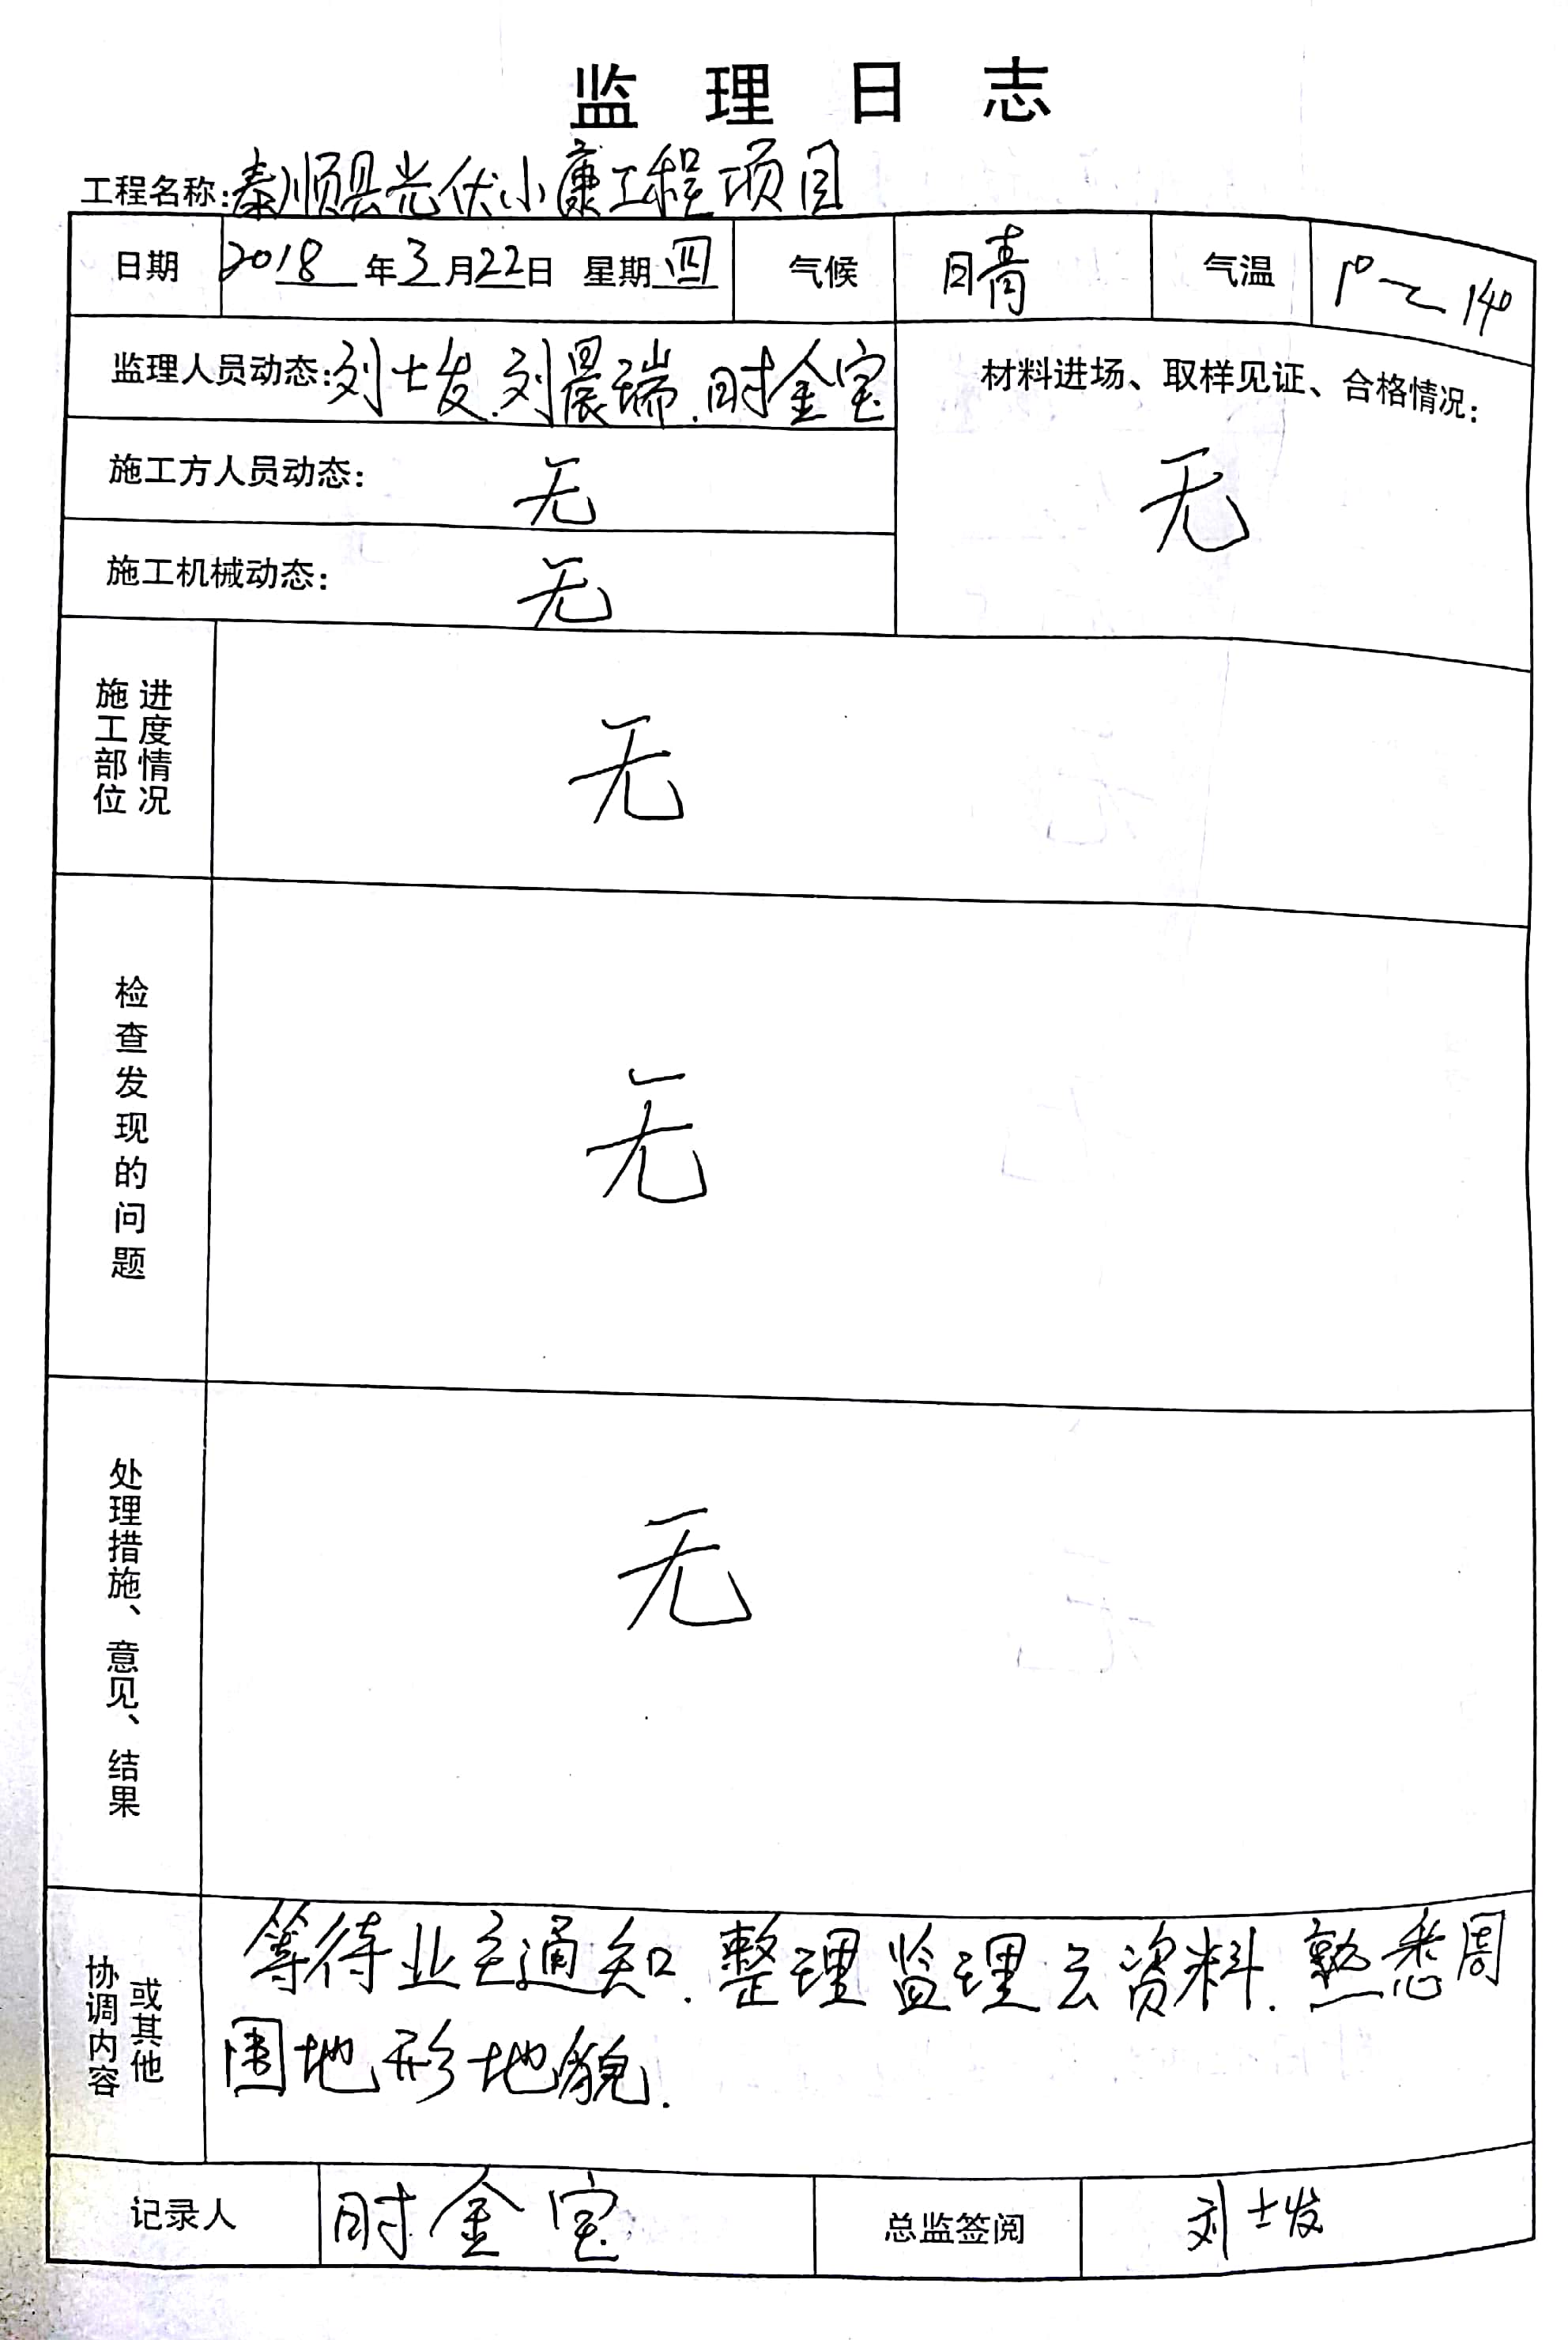 监理日志
工程名称:泰顺县光伏小康工程项目
日期 2018年3月22日 星期四 气候 晴 气温 1°~14°
监理人员动态:刘士发.刘晨瑞.时金宝
材料进场、取样见证、合格情况:
无
施工方人员动态: 无
施工机械动态: 无
施工部位
进度情况
无
检查发现的问题
无
处理措施、意见、结果
无
协调内容
或其他
等待业主通知.整理监理云资料.熟悉周
围地形地貌.
记录人 时金宝 总监签阅 刘士发